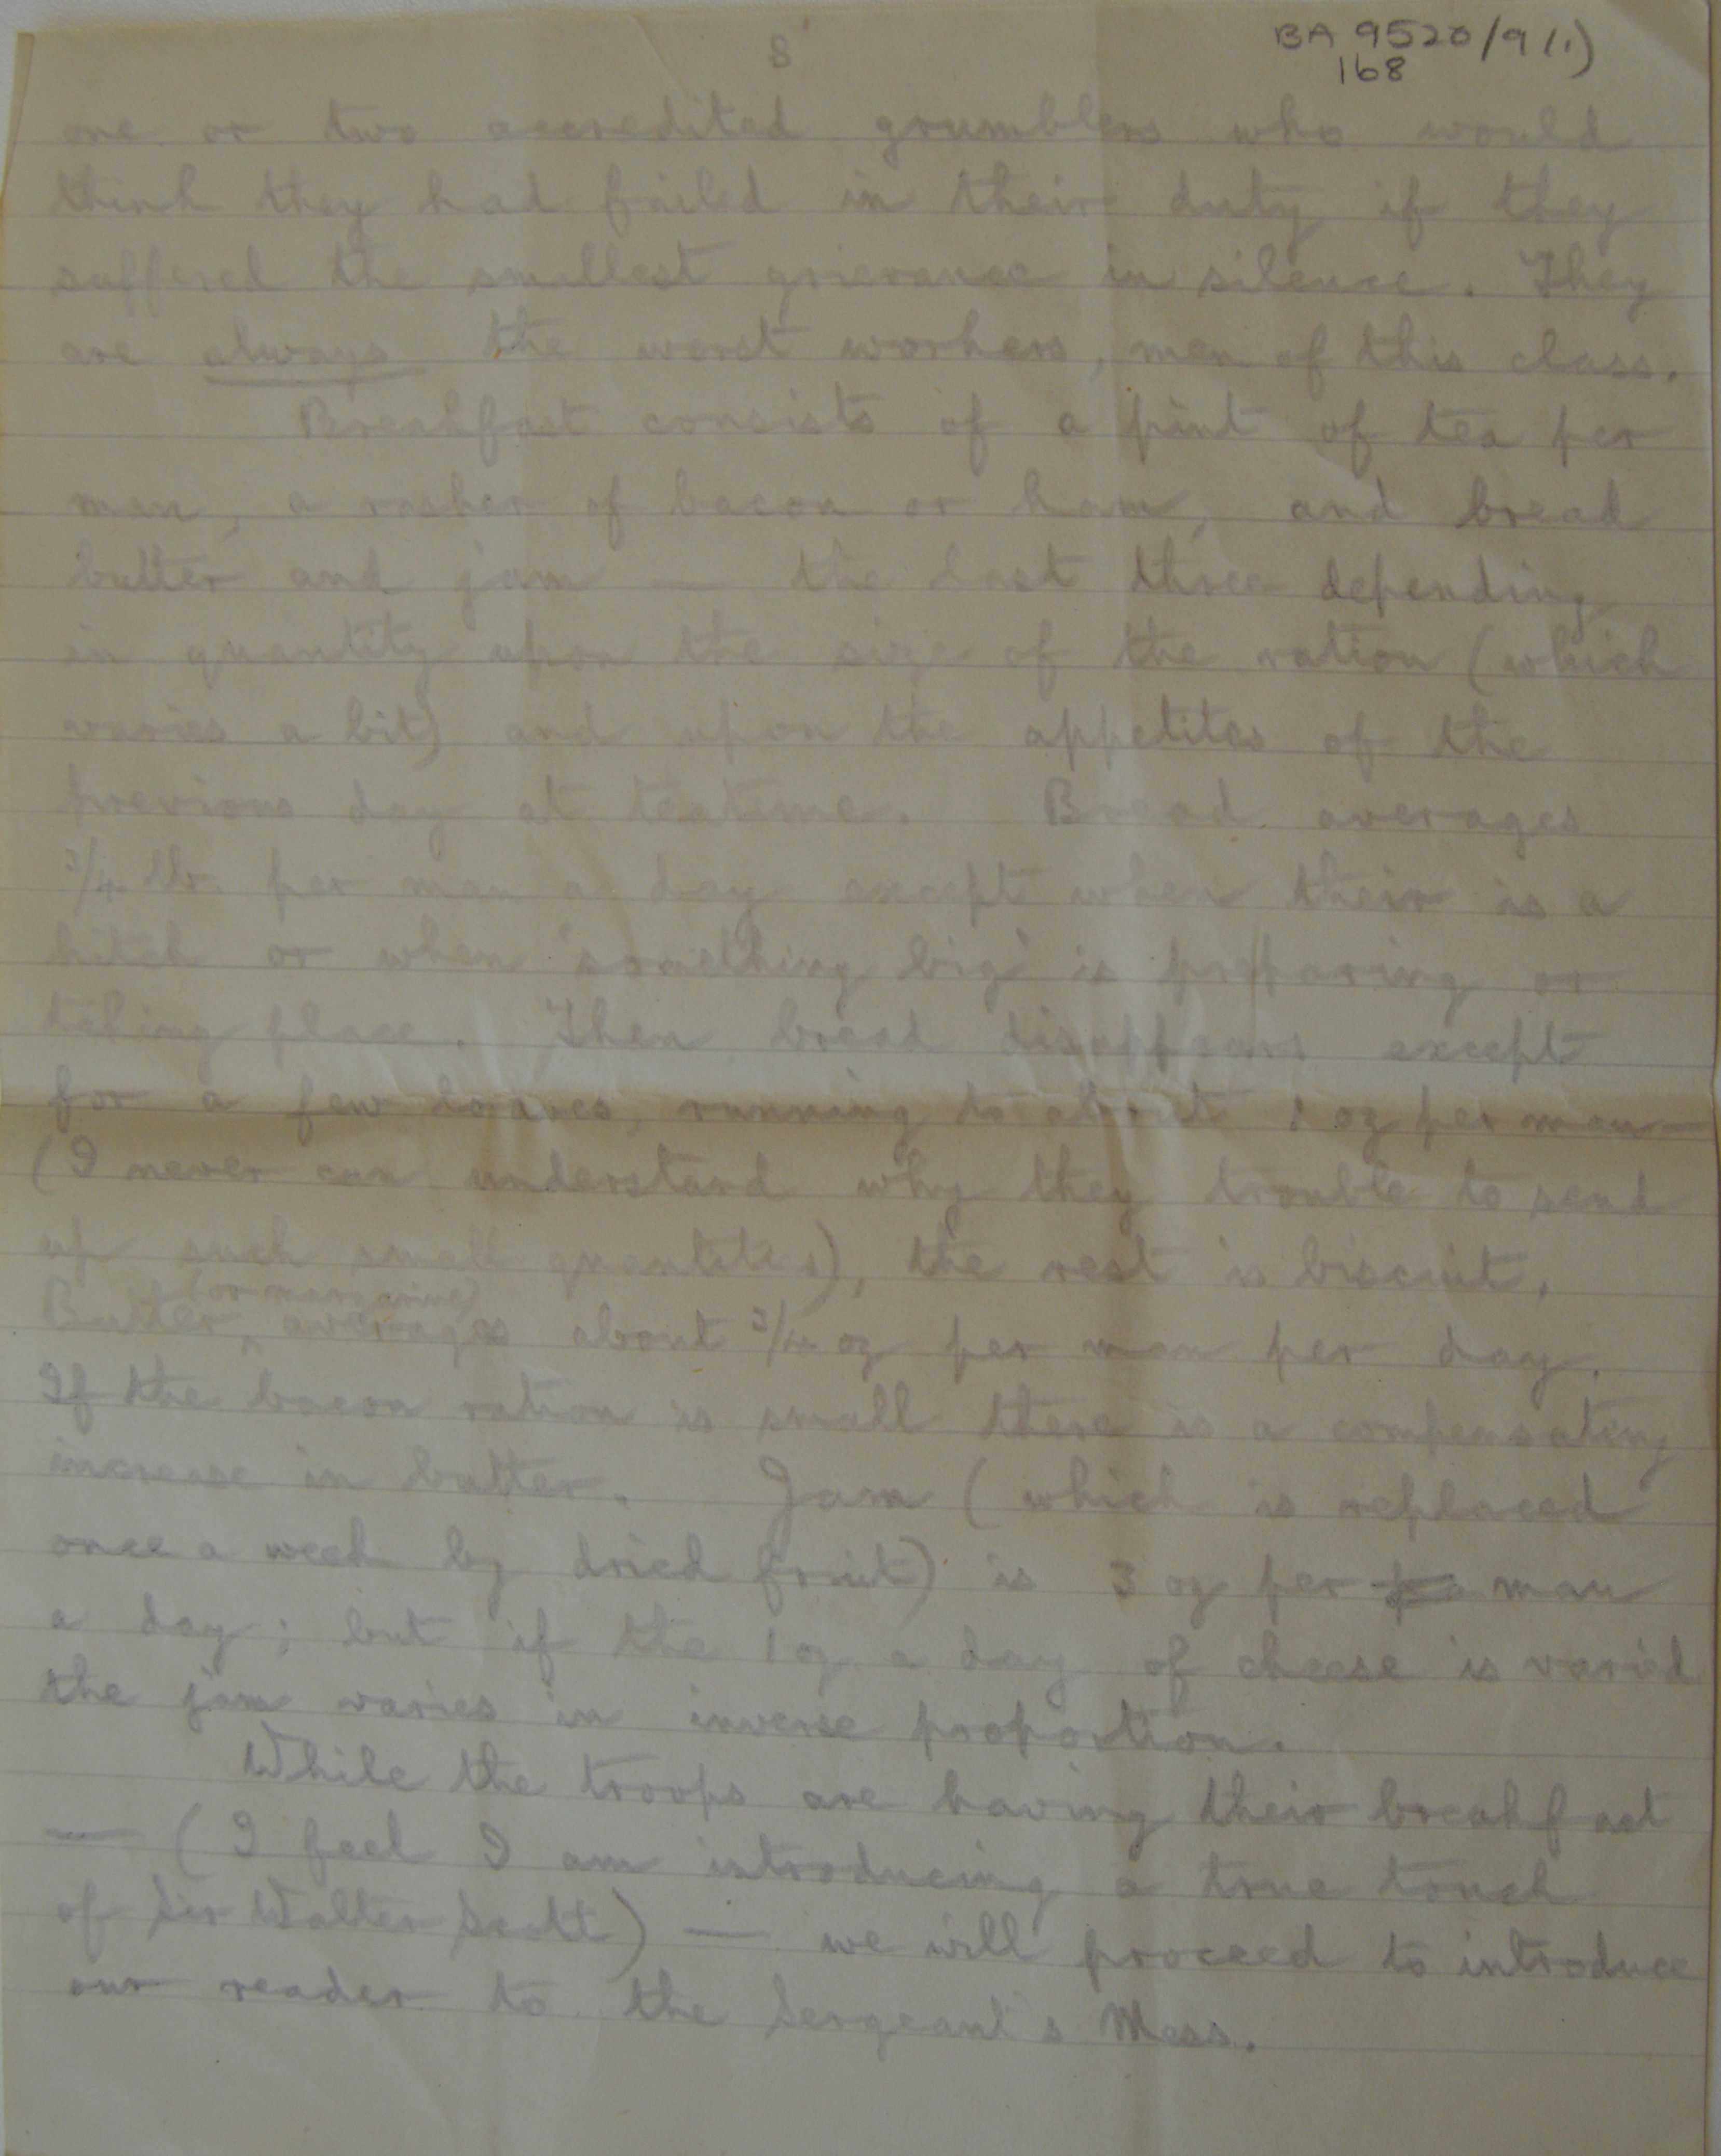 8
BA 9520/9(1)
168
one or two accredited grumblers who would
think they had failed in their duty if they
suffered the smallest grievance in silence. They
are always the worst workers, men of this class.
Breakfast consists of a pint of tea per
man, a rasher of bacon or ham, and bread
butter and jam — the last three depending
in quantity upon the size of the ration (which
varies a bit) and upon the appetites of the
previous day at teatime. Bread averages
3/4 lb. per man a day except when their is a
hitch or when 'something big' is preparing or
taking place. Then bread disappears except
for a few loaves, running to about 1 oz per man —
(I never can understand why they trouble to send
up such small quantities), the rest is biscuit.
(or margarine)
Butter ^ averages about 3/4 oz per man per day.
If the bacon ration is small there is a compensating
increase in butter. Jam (which is replaced
once a week by dried fruit) is 3 oz per man
a day; but if the 1 oz a day of cheese is varied
the jam varies in inverse proportion.
While the troops are having their breakfast
— (I feel I am introducing a true touch
of Sir Walter Scott) — we will proceed to introduce
our reader to the Sergeant's Mess.